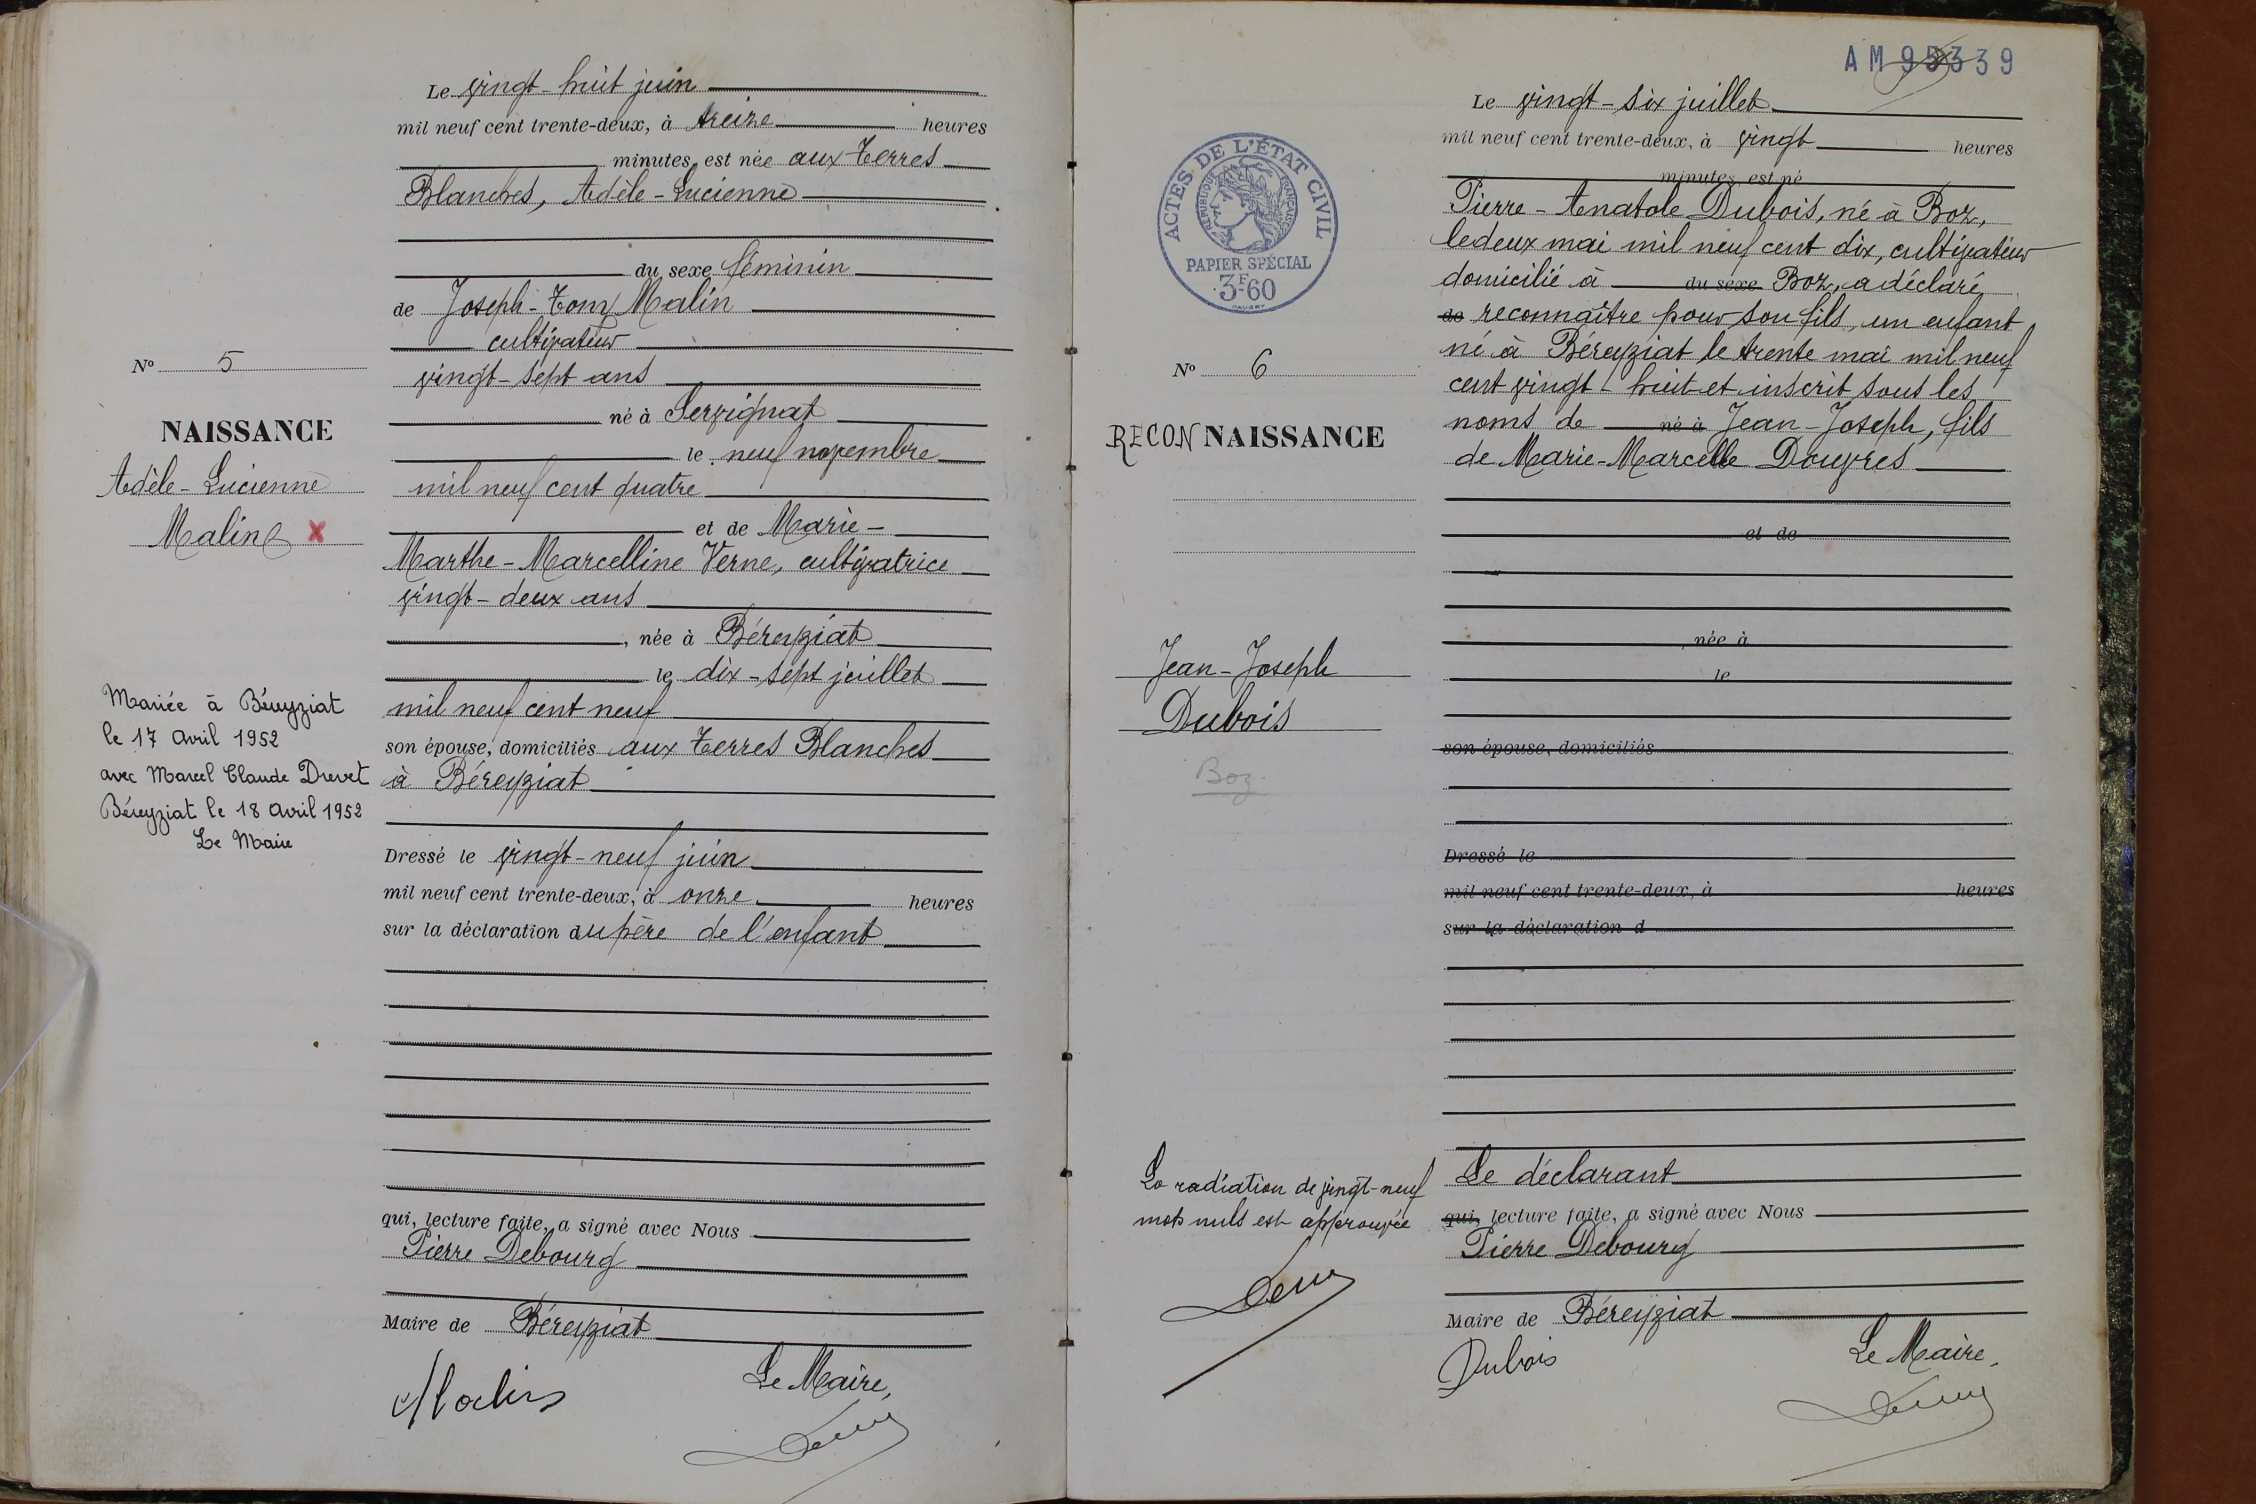 Le vingt-huit juin
mil neuf cent trente-deux, à treize heures
minutes, est née aux Terres
Blanches, Adèle-Lucienne
du sexe féminin
de Joseph-Tony Malin
cultivateur
vingt-sept ans
né à Servignat
le neuf novembre
mil neuf cent quatre
et de Marie-
Marthe-Marcelline Verne, cultivatrice
vingt-deux ans
, née à Béreyziat
le dix-sept juillet
mil neuf cent neuf
son épouse, domiciliés aux Terres Blanches
à Béreyziat
Dressé le vingt-neuf juin
mil neuf cent trente-deux, à onze heures
sur la déclaration du père de l'enfant
qui, lecture faite, a signé avec Nous
Pierre Debourg
Maire de Béreyziat
Malin
Le Maire,
No 5
NAISSANCE
Adèle-Lucienne
Malin
X
Mariée à Béreyziat
le 17 Avril 1952
avec Marcel Claude Drevet
Béreyziat le 18 Avril 1952
Le Maire
AM 95339
ACTES DE L'ÉTAT CIVIL
RÉPUBLIQUE FRANÇAISE
PAPIER SPÉCIAL
3F60
No 6
RECONNAISSANCE
Jean-Joseph
Dubois
Boz
La radiation de vingt-neuf
mots nuls est approuvée
Le vingt-six juillet
mil neuf cent trente-deux, à vingt heures
minutes est né
Pierre-Anatole Dubois, né à Boz,
le deux mai mil neuf cent dix, cultivateur
domicilié à du sexe Boz, a déclaré
de reconnaître pour son fils, un enfant
né à Béreyziat le trente mai mil neuf
cent vingt-huit et inscrit sous les
noms de né à Jean-Joseph, fils
de Marie-Marcelle Douvres
et de
née à
le
son épouse, domiciliés
Dressé le
mil neuf cent trente-deux, à heures
sur la déclaration d
Le déclarant
qui, lecture faite, a signé avec Nous
Pierre Debourg
Maire de Béreyziat
Dubois
Le Maire,